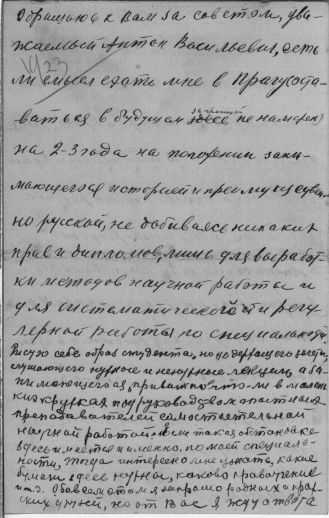 Обращаюсь к Вам за советом, ува-
жаемый Антон Васильевич, есть
ли смысл ехать мне в Прагу (оста-
ваться в будущем здесь не намерен)
на 2-3 года на положении зани-
мающегося историей и преимуществен-
но русской, не добиваясь никаких
прав и дипломов, лишь для выработ-
ки методов научной работы и
для систематической и регу-
лярной работы по специальности.
Рисую себе образ студента,
слушающего нужное и ненужное лекции, а за-
нимающегося, в малень-
ких кружках под руководством опытных
преподавателей самостоятельной
научной работой. Если такая обстановка
здесь имеется и именно, по моей специаль-
ности, тогда интересно мне узнать, какие
бумаги здесь нужны, каково правоучение
и т.д. Обо всем этом я запрошу родных и праж-
ских друзей, но от Вас я жду ответа